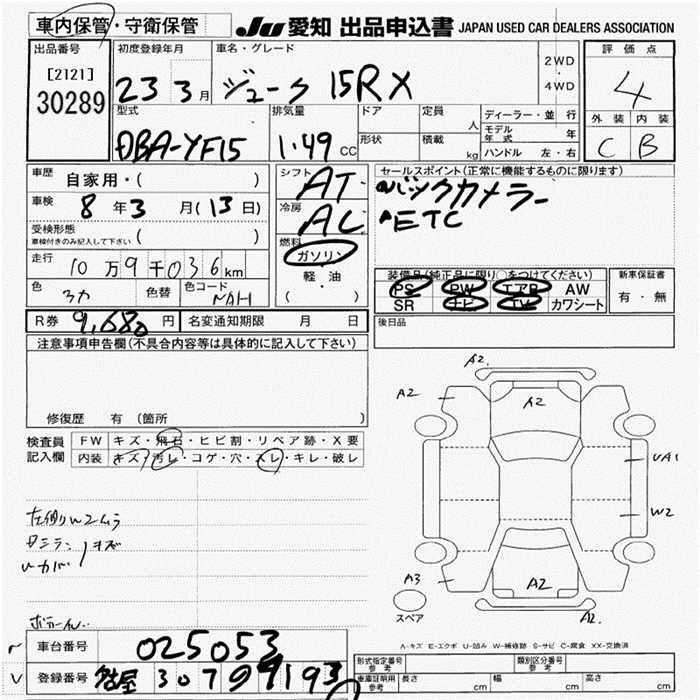 車内保管・守衛保管
JU 愛知 出品申込書 JAPAN USED CAR DEALERS ASSOCIATION
出品番号
[2121]
30289
初度登録年月
23 3月
車名・グレード
ジューク 15RX
2WD
4WD
評価点
4
外装 内装
C B
型式
DBA-YF15
排気量
1.49 CC
ドア
形状
定員
人
積載
kg
ディーラー・並行
モデル年式 年
ハンドル 左・右
車歴
自家用・( )
車検
8年3月(13日)
受検形態
車検付きのみ記入して下さい ( )
走行
10万9千036km
色
色替
色コード
NAH
シフト
AT
冷房
AC
燃料
ガソリン
軽・油
( ・ )
セールスポイント(正常に機能するものに限ります)
バックカメラー
ETC
装備品(純正品に限り○をつけてください)
PS PW エアB AW
SR ナビ TV カワシート
新車保証書
有・無
後日品
R券 9,680円
名変通知期限 月 日
注意事項申告欄(不具合内容等は具体的に記入して下さい)
修復歴 有 (箇所 )
検査員
記入欄
FW キズ・飛石・ヒビ割・リペア跡・X要
内装 キズ・汚レ・コゲ・穴・スレ・キレ・破レ
左側リW2ムラ
キズ
A2
A2
A2
UA1
W2
A3
A2
A2
スペア
A-キズ E-エクボ U-凹み W-補修跡 S-サビ C-腐食 XX-交換済
車台番号 025053
登録番号 名古屋 307
形式指定番号
参考
類別区分番号
参考
車庫証明用
参考
長さ cm 幅 cm 高さ cm